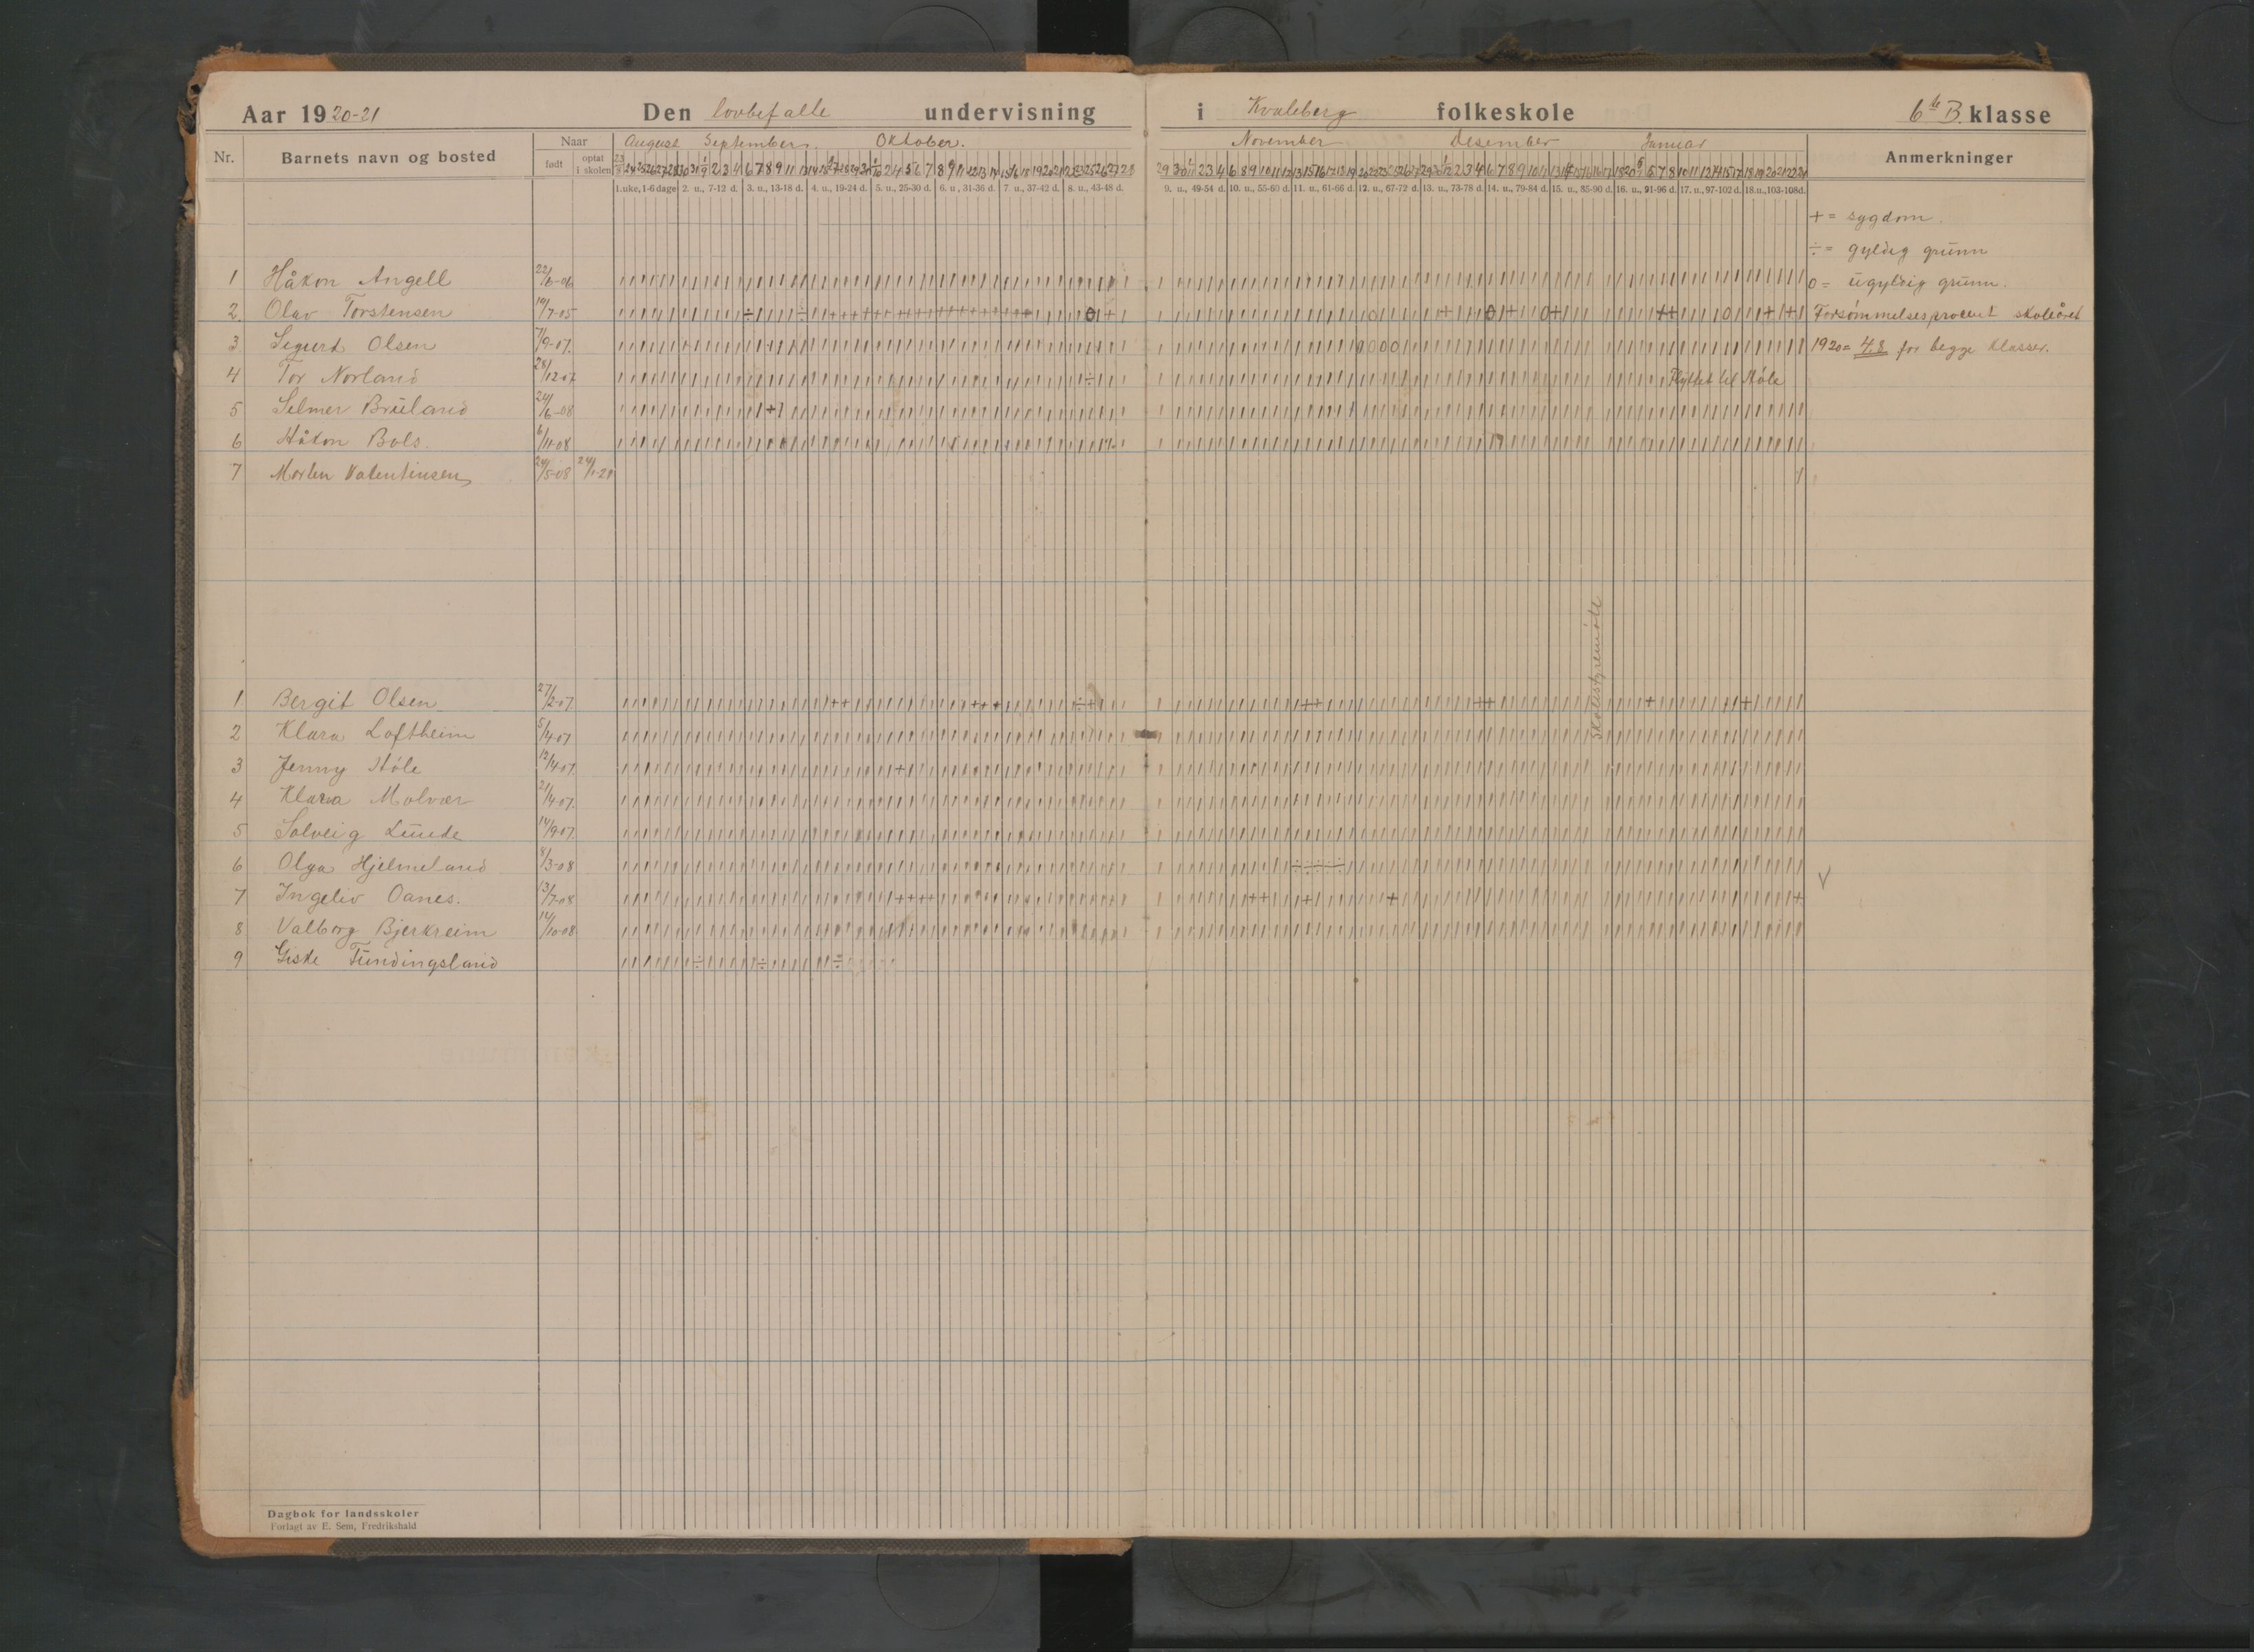 Aar 1920-21 Den lovbefalte undervisning i Kvaleberg folkeskole 6te B. klasse
Nr. Barnets navn og bosted Naar født optat i skolen August September Oktober. November Desember Januar Anmerkninger
1.uke, 1-6 dage 2. u., 7-12 d. 3. u., 13-18 d. 4. u., 19-24 d. 5. u., 25-30 d. 6. u., 31-36 d. 7. u., 37-42 d. 8. u., 43-48 d. 9. u., 49-54 d. 10. u., 55-60 d. 11. u., 61-66 d. 12. u., 67-72 d. 13. u., 73-78 d. 14. u., 79-84 d. 15. u., 85-90 d. 16. u., 91-96 d. 17. u., 97-102 d. 18.u.,103-108d.
+ = sygdom.
÷ = gyldig grunn
o = ugyldig grunn.
Forsømmelsesprocent skoleåret
1920 = 4.8 for begge klasser.
1 Håkon Angell 22/6-06
2. Olav Torstensen 19/7-05
3 Sigurd Olsen 7/9-07.
4 Tor Norland 28/12-07 Flyttet til Høle
5 Selmer Brueland 24/6-08
6 Håkon Bols. 6/11-08
7 Morten Valentinsen 24/5-08 24/1-21
Skolestyremøte
1 Bergit Olsen 27/2-07
2 Klara Loftheim 5/4-07
3 Jenny Høle 12/4-07
4 Klara Molvær 21/4-07.
5 Solveig Lunde 14/9-07
6 Olga Hjelmeland 8/3-08
7 Ingeliv Oanes. 13/7-08
8 Valborg Bjerkreim 14/10-08
9 Giske Fundingsland
Dagbok for landsskoler
Forlagt av E. Sem, Fredrikshald